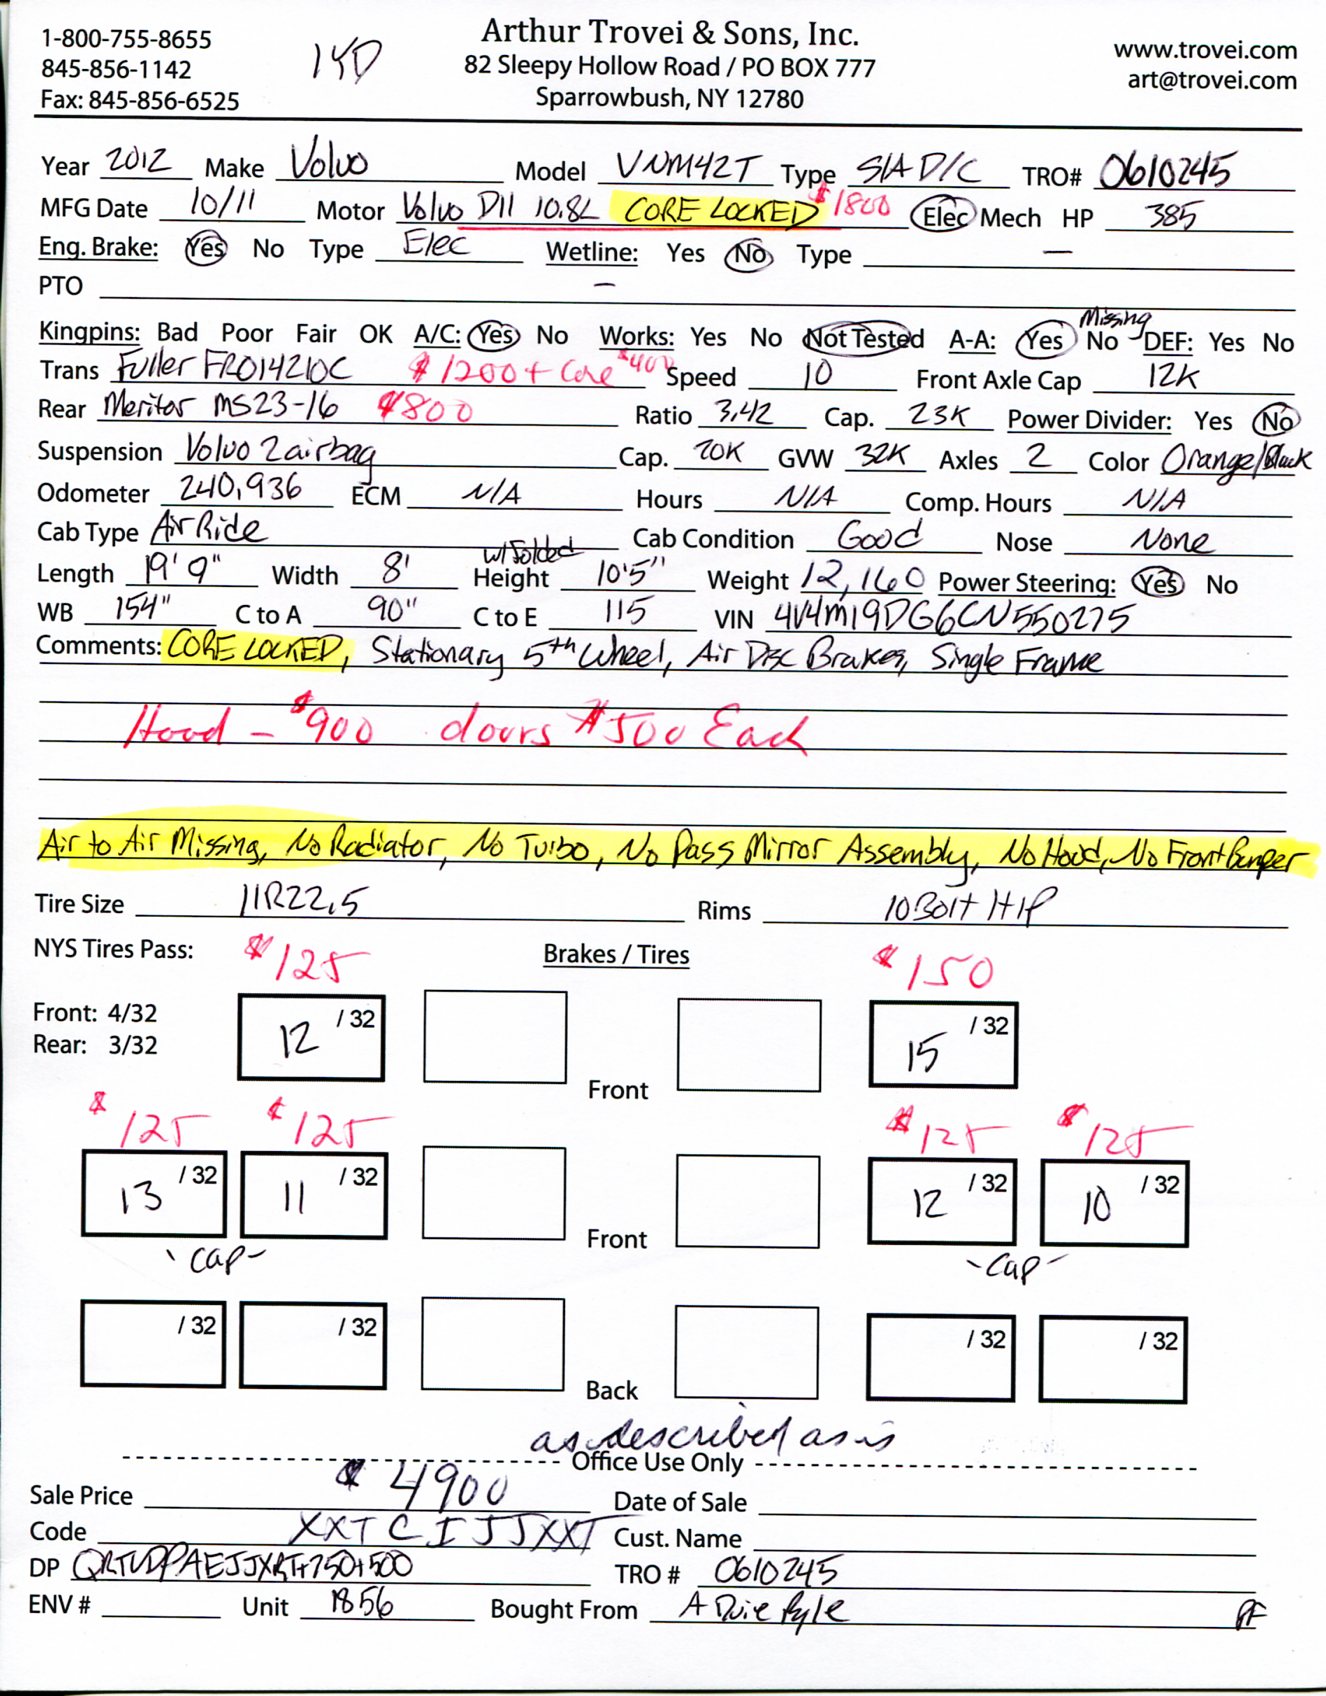 1-800-755-8655
845-856-1142
Fax: 845-856-6525
Arthur Trovei & Sons, Inc.
82 Sleepy Hollow Road / PO BOX 777
Sparrowbush, NY 12780
www.trovei.com
art@trovei.com
Year 2012 Make Volvo Model VNM42T Type S/A D/C TRO# 0610245
MFG Date 10/11 Motor Volvo D11 10.8L CORE LOCKED $1800 Elec Mech HP 385
Eng. Brake: Yes No Type Elec Wetline: Yes No Type —
PTO —
Kingpins: Bad Poor Fair OK A/C: Yes No Works: Yes No Not Tested A-A: Yes No Missing DEF: Yes No
Trans Fuller FRO14210C $1200 + Core $400 Speed 10 Front Axle Cap 12K
Rear Meritor MS23-16 $800 Ratio 3.42 Cap. 23K Power Divider: Yes No
Suspension Volvo 2 airbag Cap. 20K GVW 32K Axles 2 Color Orange/Black
Odometer 240,936 ECM N/A Hours N/A Comp. Hours N/A
Cab Type Air Ride Cab Condition Good Nose None
Length 19' 9" Width 8' w/ Folded Height 10'5" Weight 12,160 Power Steering: Yes No
WB 154" C to A 90" C to E 115 VIN 4V4M19DG6CN550275
Comments: CORE LOCKED, Stationary 5th Wheel, Air Disc Brakes, Single Frame
Hood - $900 doors $500 Each
Air to Air Missing, No Radiator, No Turbo, No Pass Mirror Assembly, No Hood, No Front Bumper
Tire Size 11R22.5 Rims 10 Bolt HP
NYS Tires Pass: $125 Brakes / Tires $150
Front: 4/32
Rear: 3/32
12 /32 15 /32
Front
$125 $125 $125 $125
13 /32 11 /32 12 /32 10 /32
Front
-Cap- -Cap-
/32 /32 /32 /32
Back
as described as is
Office Use Only
Sale Price $4900 Date of Sale
Code XXTCIJJXXT Cust. Name
DP TRO # 0610245
ENV # Unit 1856 Bought From A Duie Pyle PF